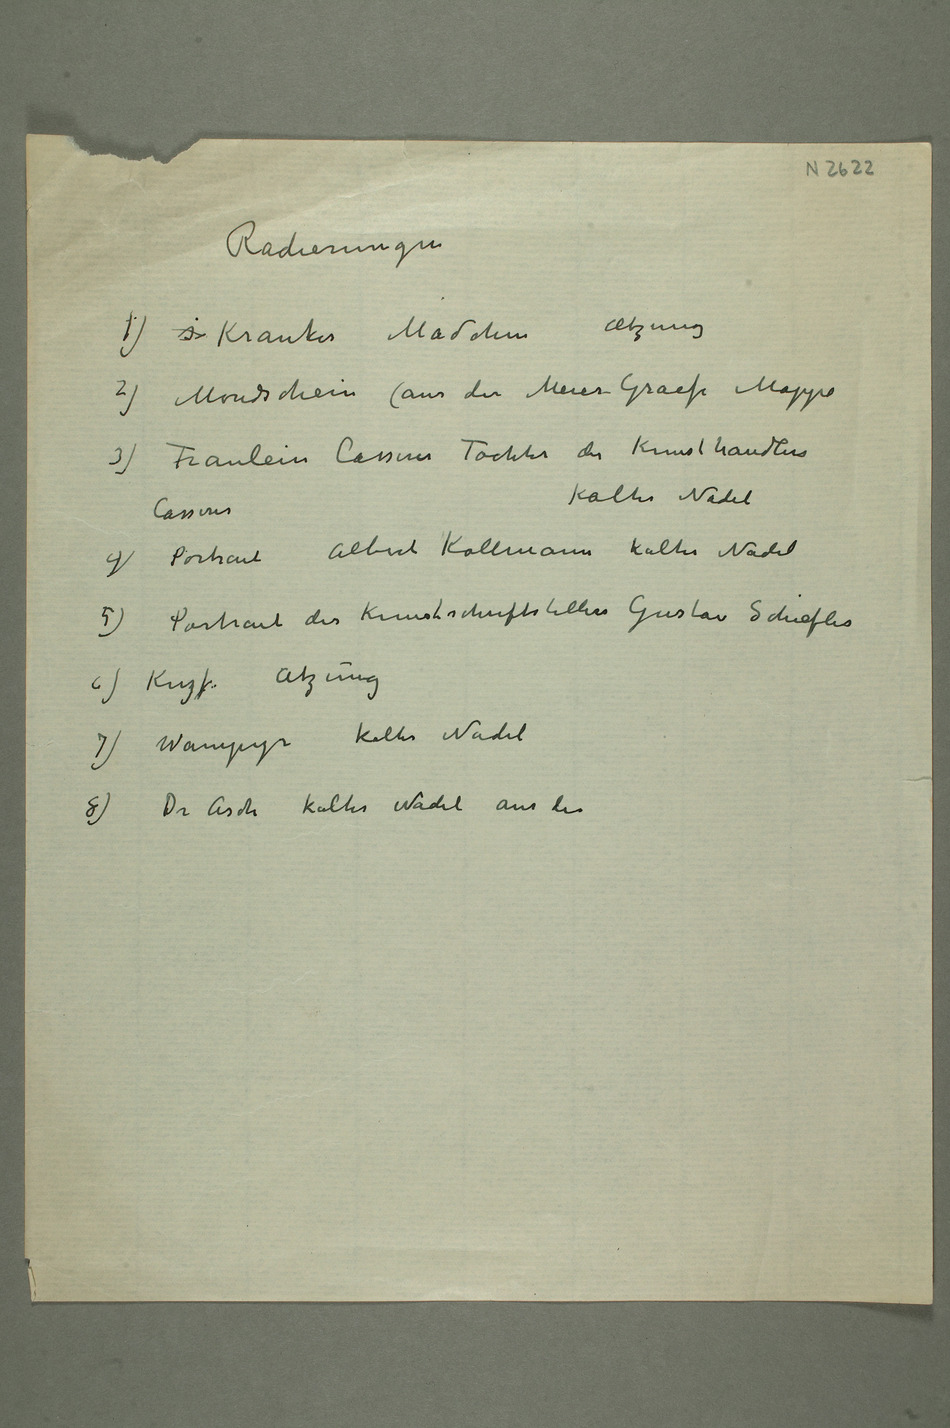 N 2622
Radierungen
1) Krankes Mädchen Ätzung
2) Mondschein (aus der Meier-Graefe Mappe
3) Fraulein Cassirer Tochter des Kunsthandlers
Cassirer Kalter Nadel
4) Portrait Albert Kollmann kalter Nadel
5) Portrait des Kunstschriftstellers Gustav Schiefler
6) Atzung
7) Wampyr kalter Nadel
8) Dr Asch kalter Nadel aus der